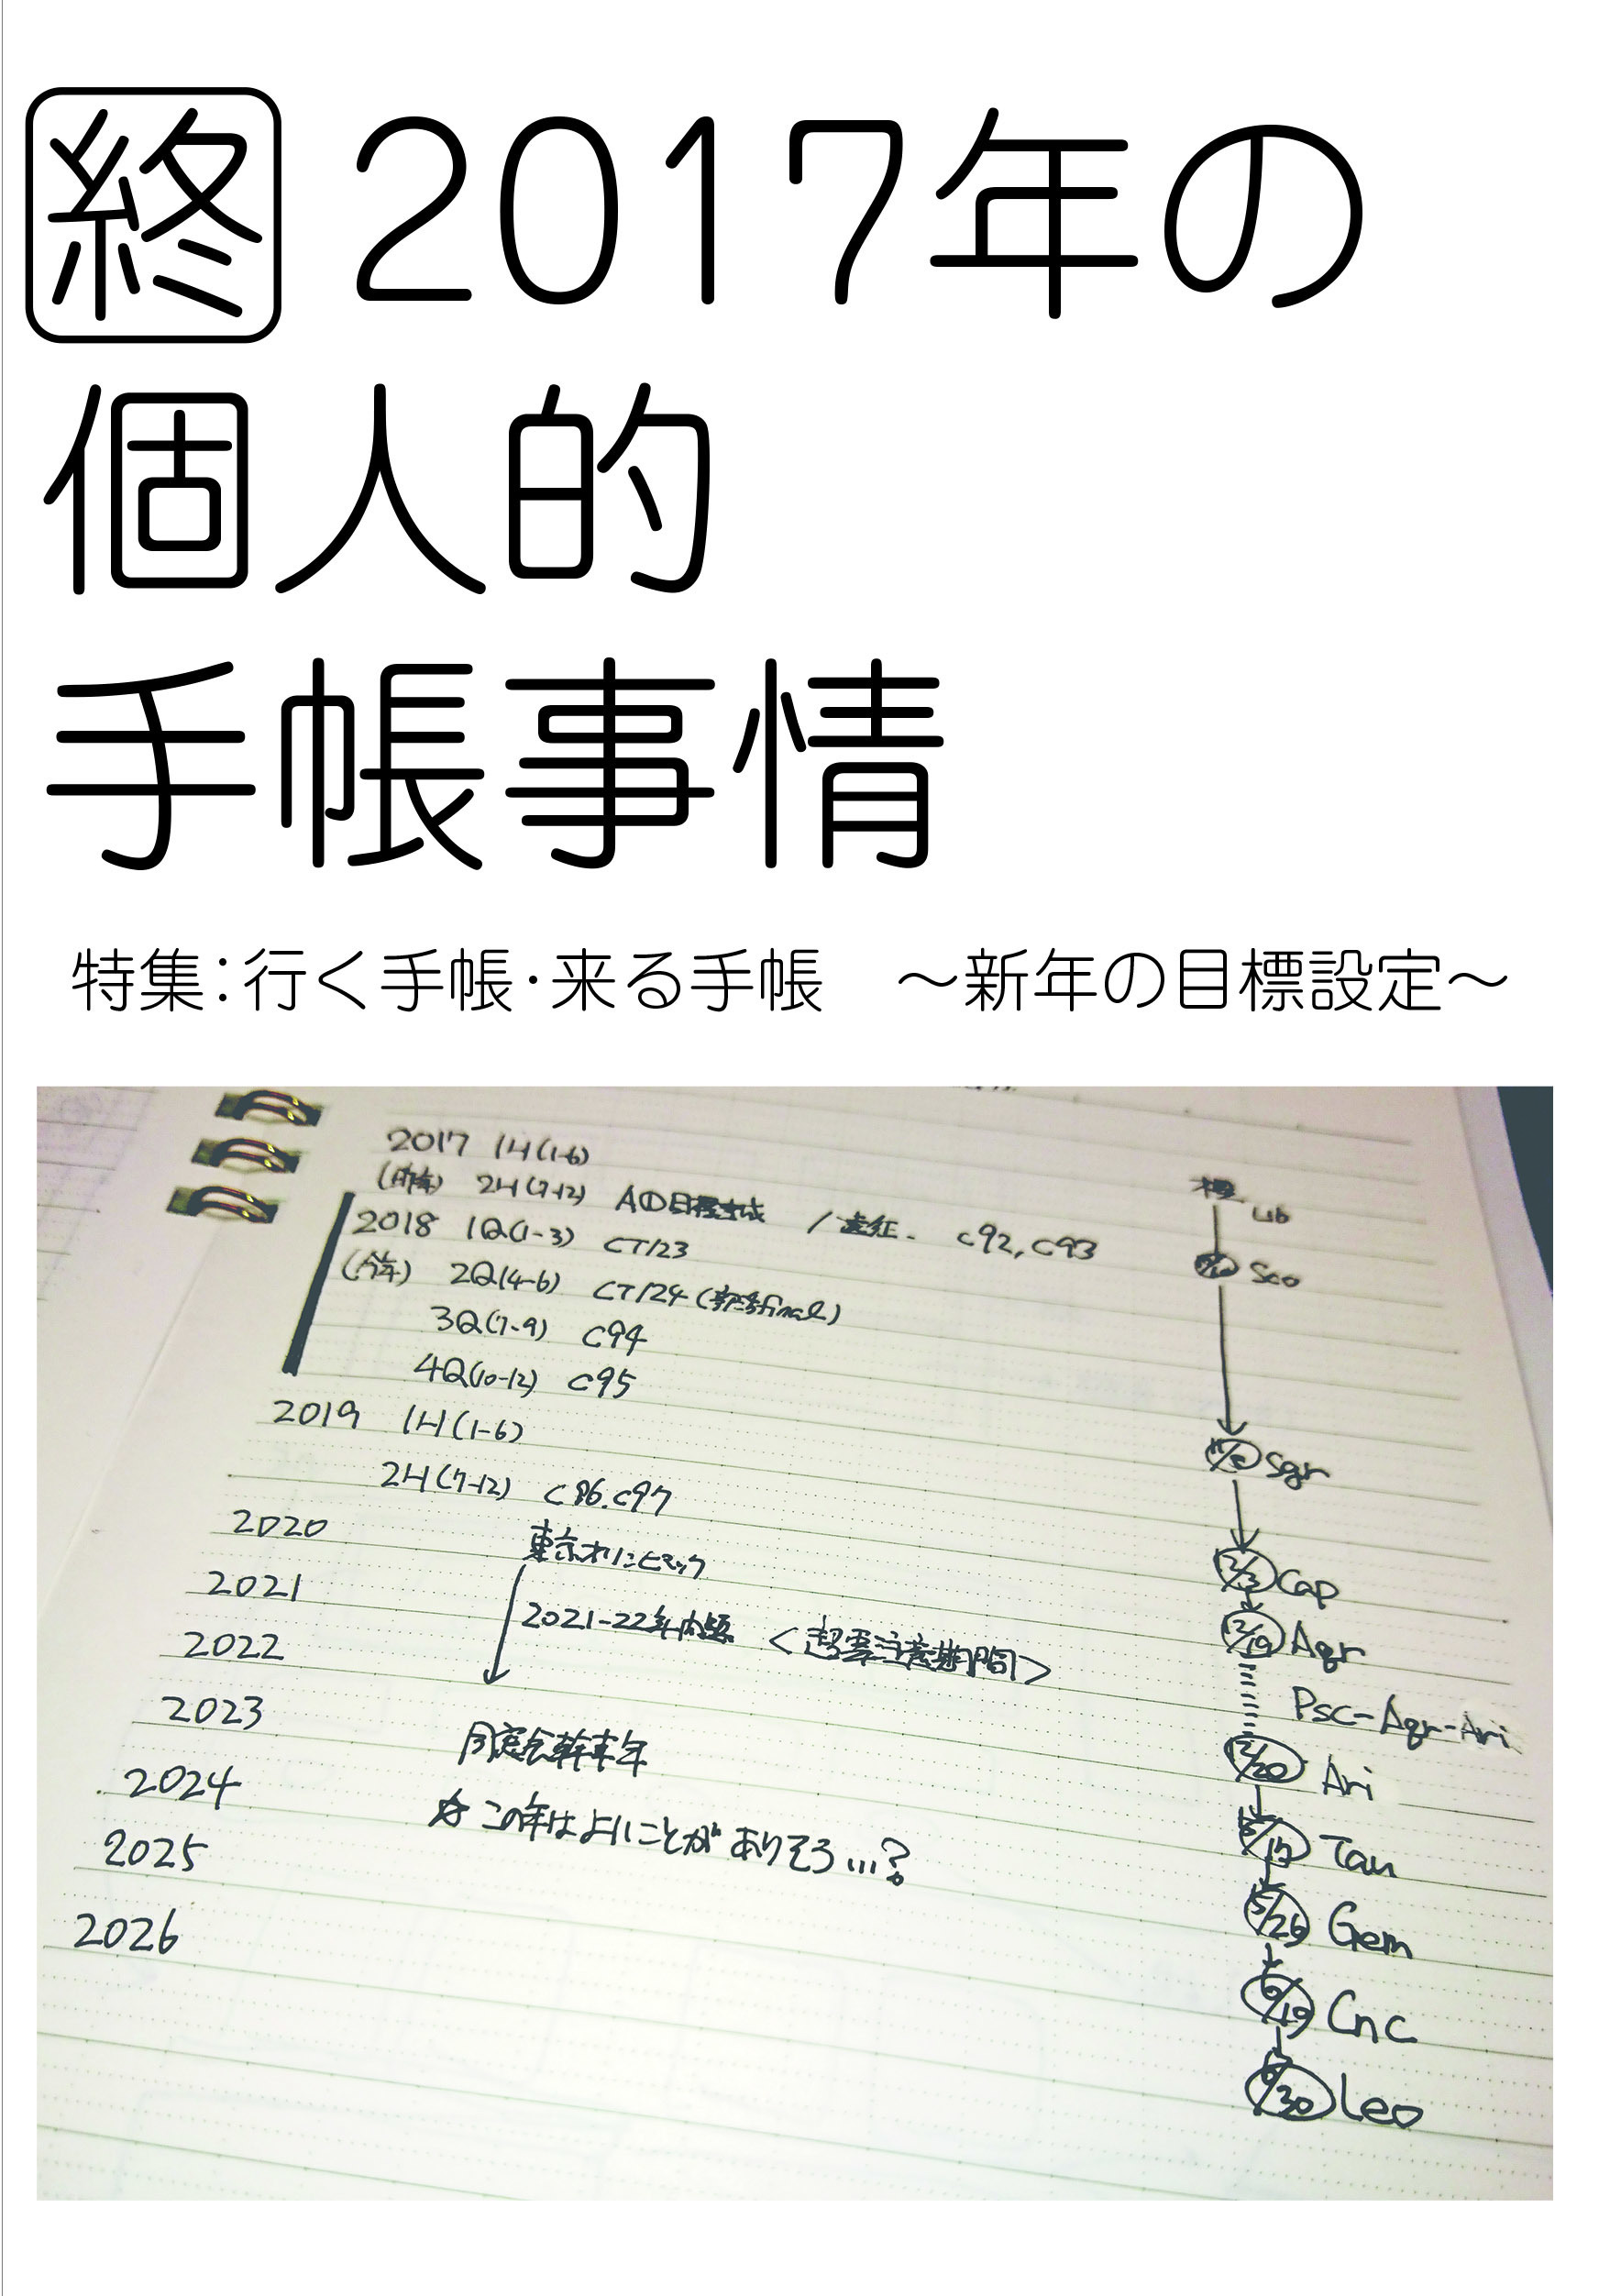 終 2017年の
個人的
手帳事情
特集：行く手帳・来る手帳　〜新年の目標設定〜
2017 1H(1-6)
(昨年) 2H(7-12) Aの目標達成 /遠征. C92, C93
2018 1Q(1-3) CT123
(今年) 2Q(4-6) CT124 (final)
3Q(7-9) C94
4Q(10-12) C95
2019 1H(1-6)
2H(7-12) C86. C97
2020 東京オリンピック
2021 2021-22年問題 <超要注意期間>
2022
2023 同窓会幹事年
2024 ☆この年はよいことがありそう...?
2025
2026
Lib
Sco
Sgr
12/3 Cap
12/19 Aqr
Psc-Aqr-Ari
12/20 Ari
Tau
5/26 Gem
6/19 Cnc
6/30 Leo